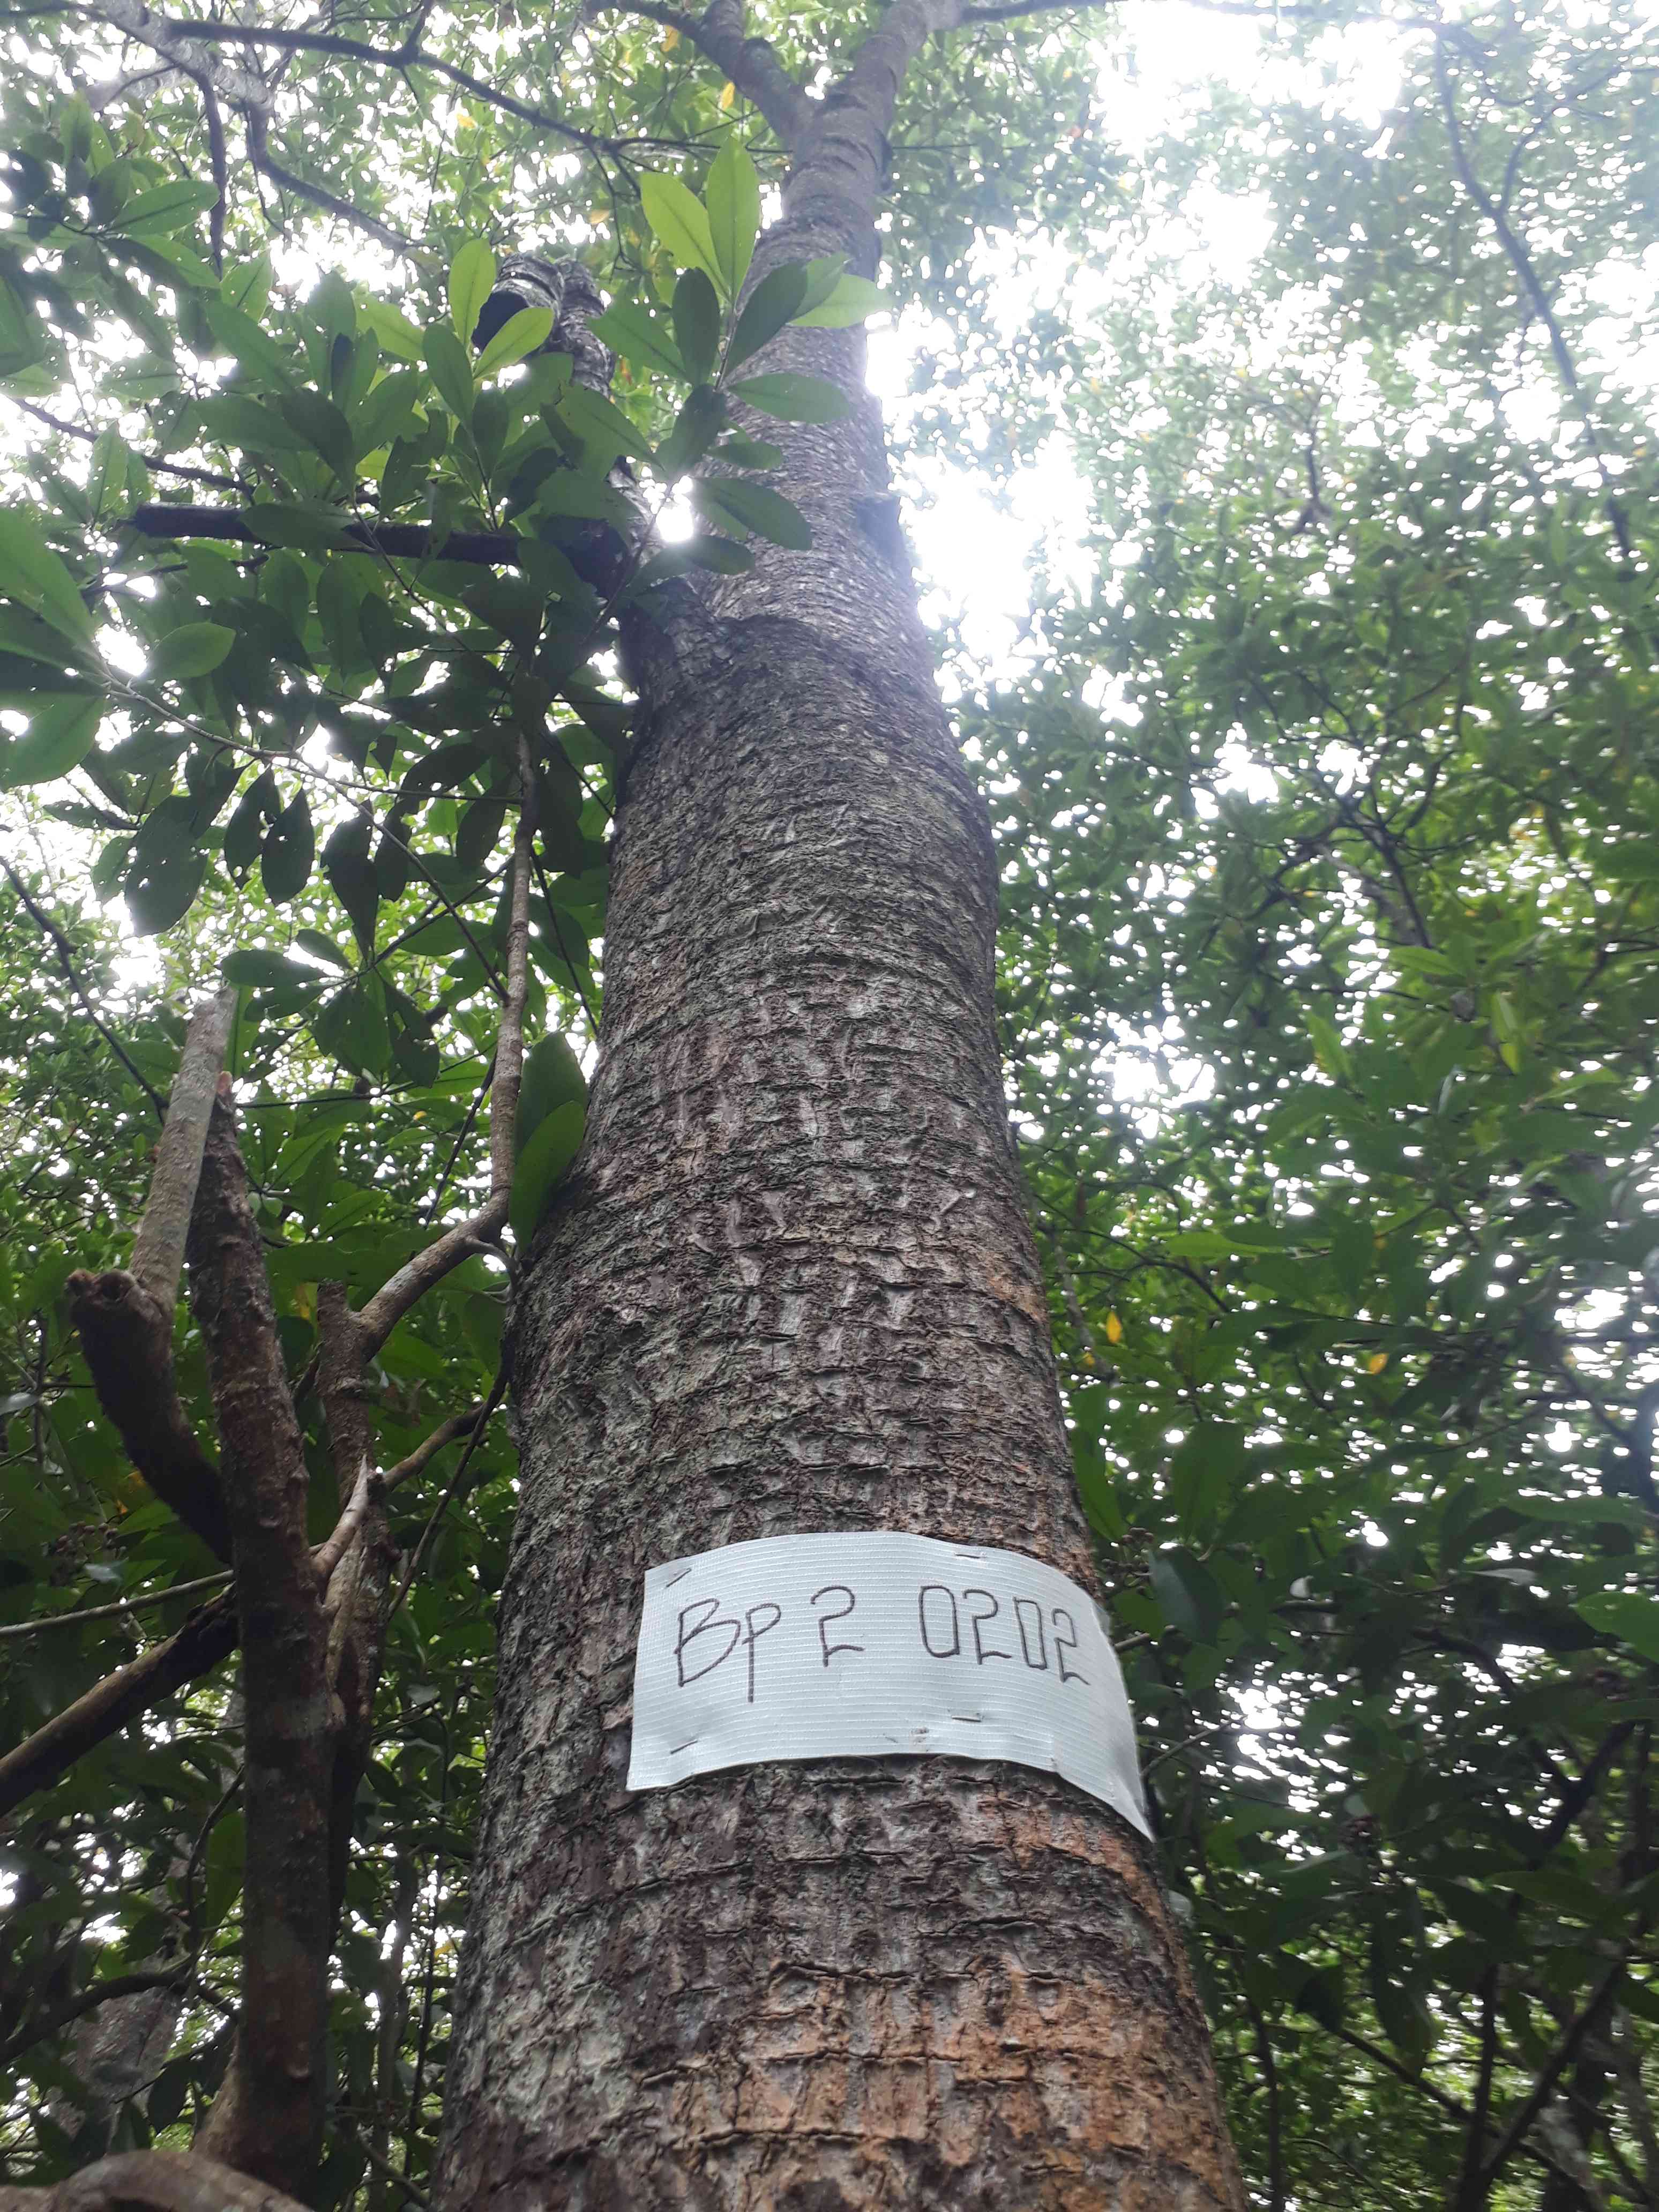 Bp 2 0202